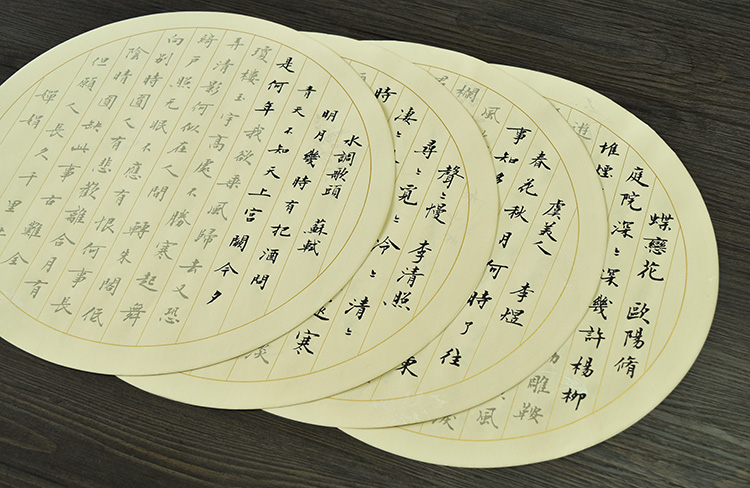 水調歌頭 蘇軾
明月幾時有把酒問
青天不知天上宮闕今夕
是何年我欲乘風歸去又恐
瓊樓玉宇高處不勝寒起舞
弄清影何似在人間轉朱閣低
綺戶照无眠不應有恨何事長
向別時圓人有悲歡離合月有
陰晴圓缺此事古難全
但願人長久千里
嬋娟
聲〻慢 李清照
尋〻覓〻冷〻清〻
淒〻 還寒
時
虞美人 李煜
春花秋月何時了往
事知多 東
風
欄
蝶戀花 歐陽脩
庭院深〻深幾許楊柳
堆煙
雕鞍
遊
風